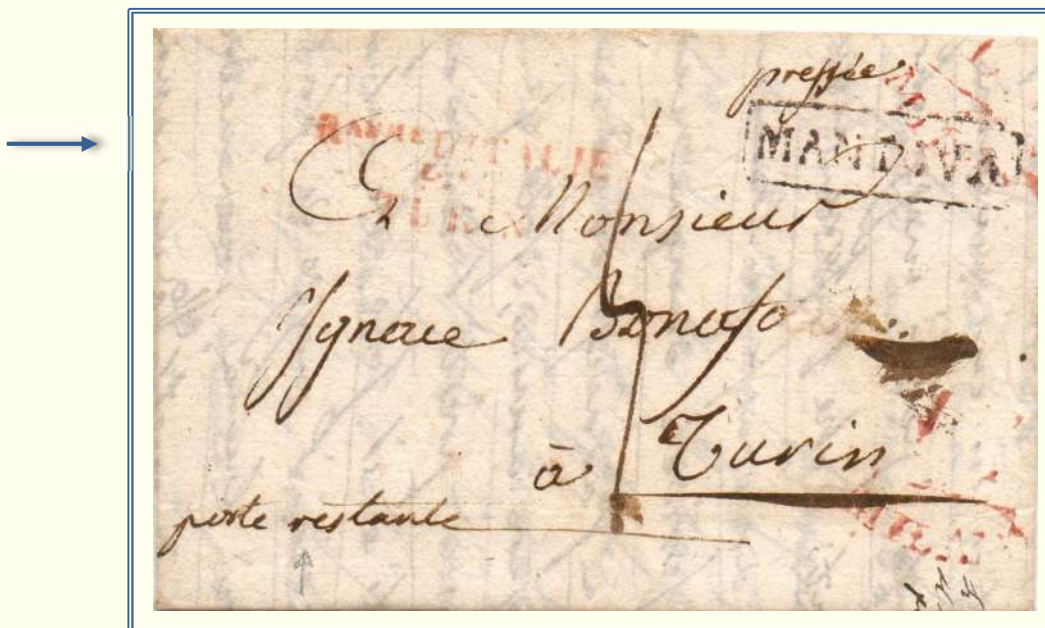 pressée
MANTOVA
ROYME D'ITALIE
TURIN
A Monsieur
Ygnace Bonafo
à Turin
poste restante